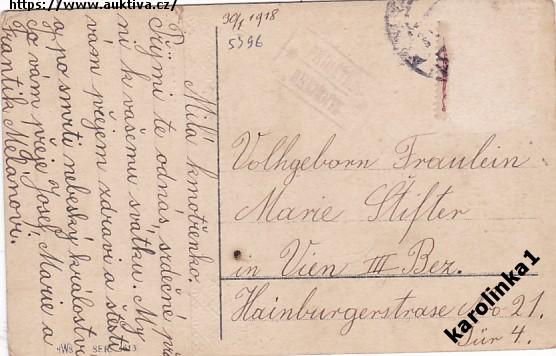 https://www.auktiva.cz/
30/1 1918
5396
Milá kmotřenko.
Přijmi te odnás, srdečné
ní k vašemu svátku. My
vám přejem zdraví a štěstí
a po smrti nebeský království
co vám přeje Josef, Marie a
Frantik Melanovi.
Volhgeborn Fraulein
Marie Štifter
in Vien III Bez.
Hainburgerstrase No. 21.
Tür 4.
karolinka1